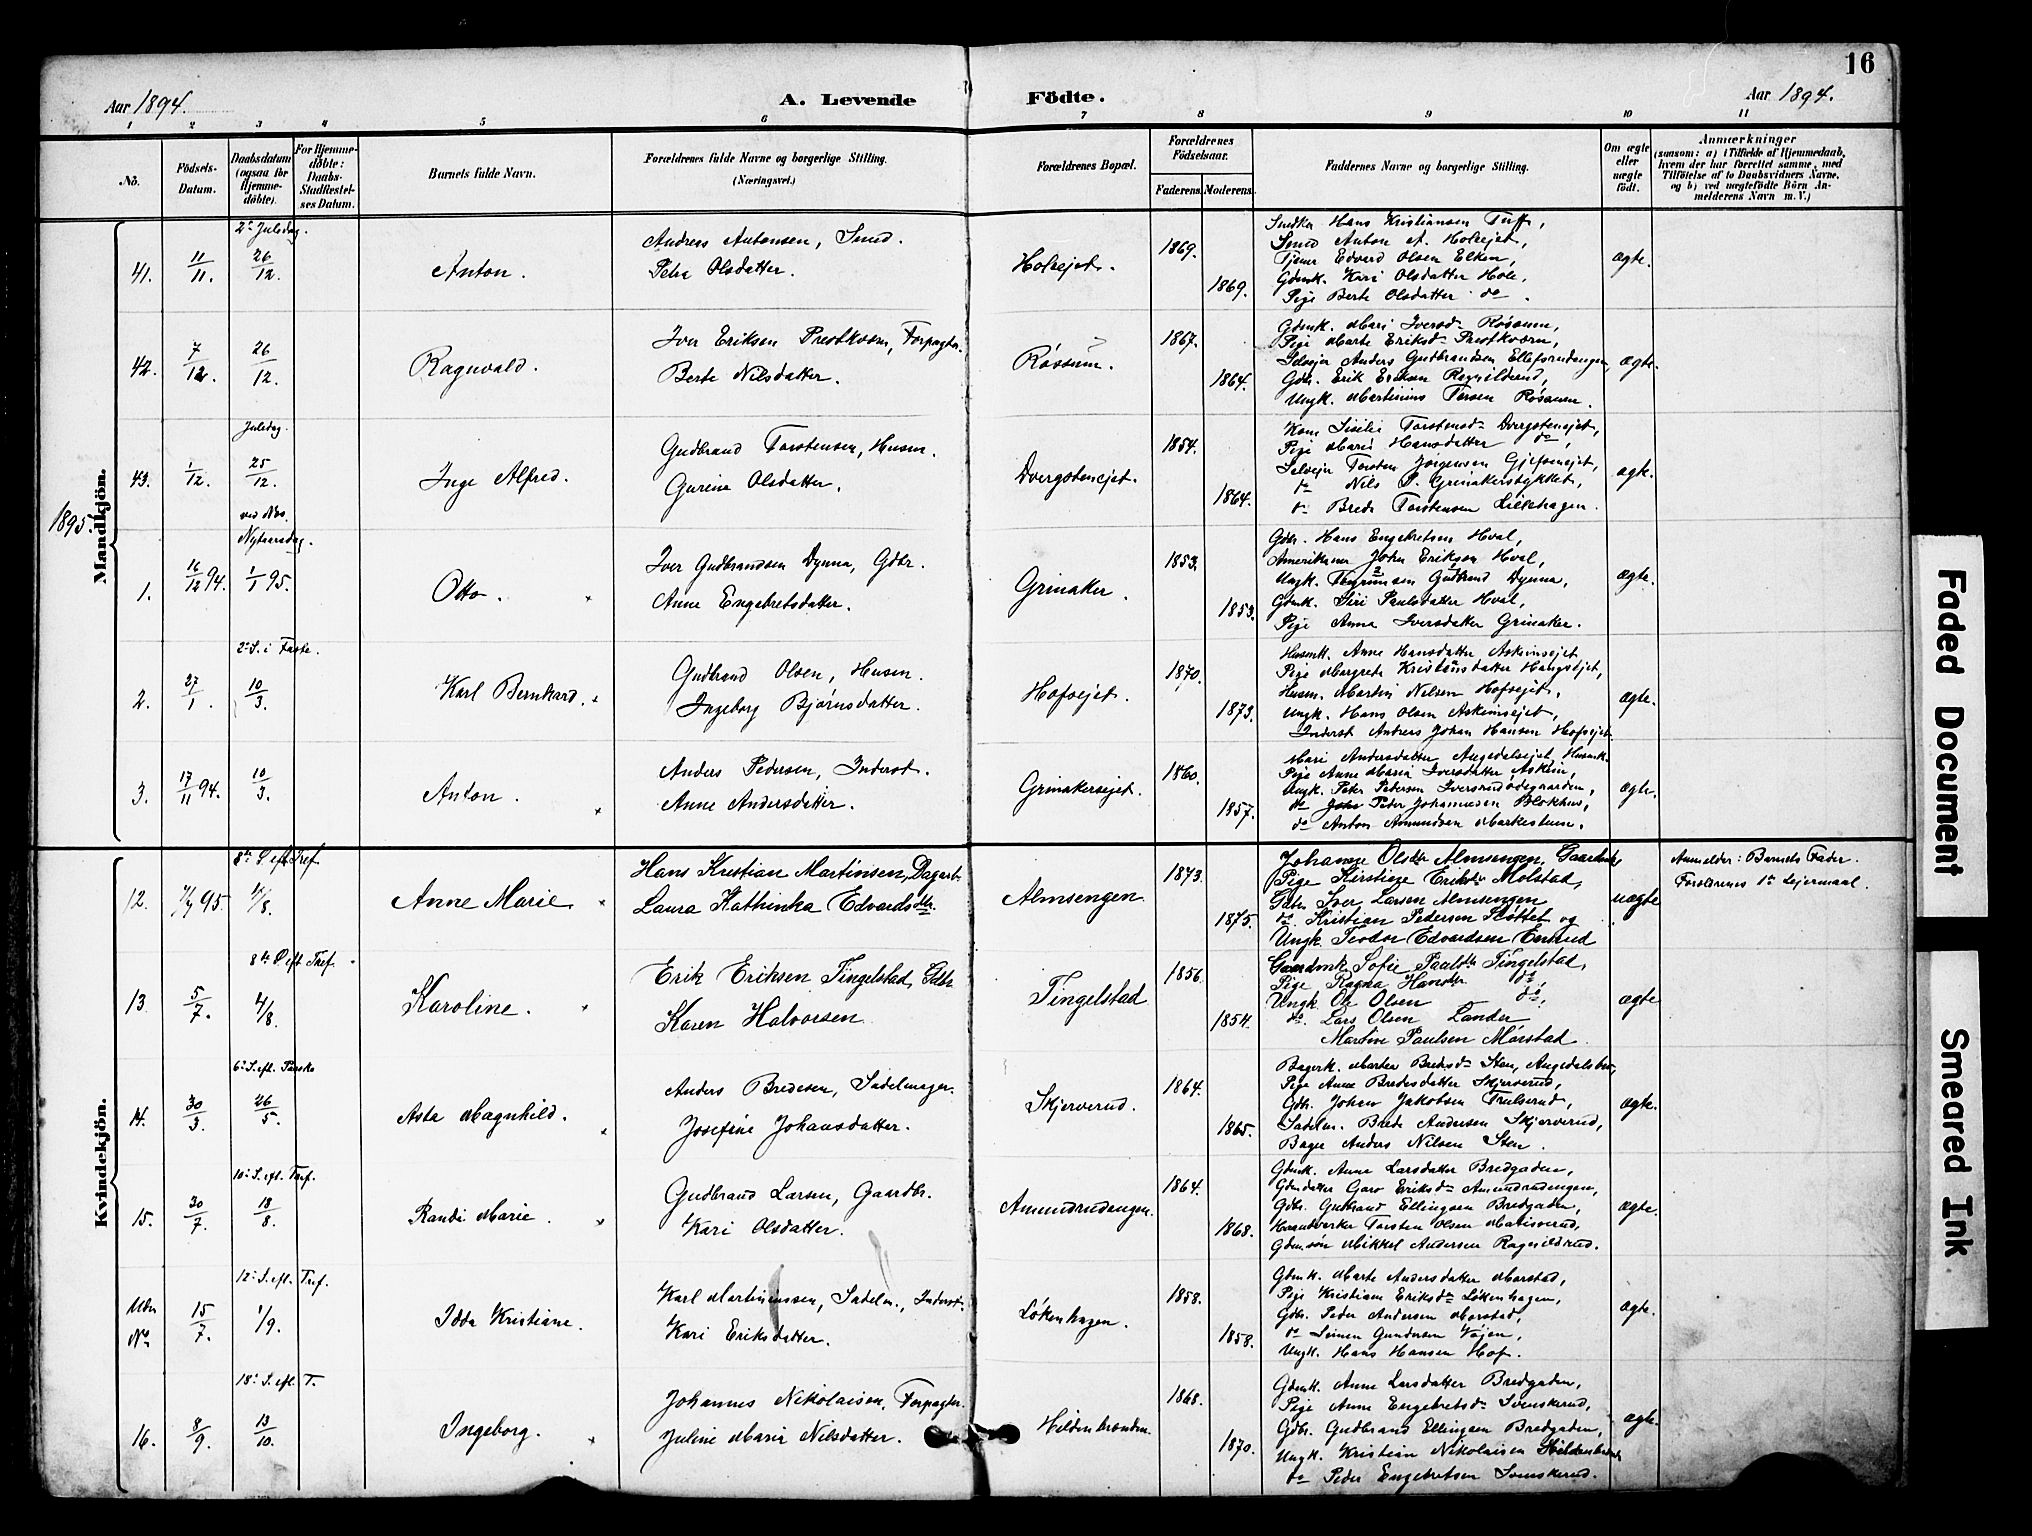 16
Aar 1894.
A. Levende Födte.
Aar 1894.
1 2 3 4 5 6 7 8 9 10 11
No.
Födsels-Datum.
Daabsdatum (ogsaa for Hjemme-döbte).
For Hjemme-döbte: Daabs-Stadfæstel-ses Datum.
Barnets fulde Navn.
Forældrenes fulde Navne og borgerlige Stilling.
(Næringsvei.)
Forældrenes Bopæl.
Forældrenes Födselsaar.
Faderens.
Moderens.
Faddernes Navne og borgerlige Stilling.
Om ægte eller uægte født.
Anmærkninger
(saasom: a) i Tilfælde af Hjemmedaab, hvem der har forrettet samme, med Tilföielse af to Daabsvidners Navne, og b) ved uægtefödte Börn An-melderens Navn m. V.)
Mandkjön.
2n Juledag.
41. 11/11. 26/12. Anton.
Andreas Antonsen, Smed.
Petra Olsdatter.
Holsejet.
1869.
1869.
Snedker Hans Kristiansen Tuff,
Smed Anton A. Holsejet,
Tjener Edvard Olsen Elken,
Gdmk. Kari Olsdatter Hole,
Pige Berte Olsdatter do.
ægte.
42. 7/12. 26/12. Ragnvald.
Iver Eriksen Prestkvern, Forpagter.
Berte Nilsdatter.
Røssum.
1867.
1864.
Gdmk. Mari Iversd. Røssum,
Pige Marte Eriksd. Prestkvern,
Selvejer Anders Gudbrandsen Ellefsrudengen,
Gdbr. Erik Eriksen Ragnilderud,
Ungk. Martinius Torsen Røssum.
ægte.
Juledag.
43. 1/12. 25/12. Inge Alfred.
Gudbrand Torstensen, Husm.
Gurine Olsdatter.
Dvergstenejet.
1854.
1864.
Kone Siselie Torstensd. Dvergstenejet,
Pige Marie Hansdatter do,
Selvejer Torsten Jørgensen Gjefsenejet,
do Nils P. Grinakerstykket,
do Brede Torstensen Lillehagen.
ægte.
1895.
ved Nøs.
Nytaarsdag.
1. 16/12 94. 1/1 95. Otto.
Iver Gudbrandsen Dynna, Gdbr.
Anne Engebretsdatter.
Grinaker.
1853.
1853.
Gdbr. Hans Engebretsen Hval,
Amerikaner Johan Eriksen Hval,
Gdmk. Siri Paulsdatter Hval,
Pige Anna Iversdatter Grinaker.
ægte.
2n S. i Faste.
2. 27/1. 10/3. Karl Bernhard.
Gudbrand Olsen, Husm.
Ingeborg Bjørnsdatter.
Hofsejet.
1870.
1873.
Husmk. Anne Hansdatter Askimsejet
Pige Margrete Kristiansdatter Haugsejet,
Husm. Martin Nilsen Hofsejet,
Ungk. Hans Olsen Askimsejet,
Inderst Andreas Johan Hansen Hofsejet.
ægte.
3. 17/11 94. 10/3. Anton.
Anders Pedersen, Inderst.
Anne Andersdatter.
Grinakersejet.
1860.
1857.
Mari Andersdatter Augedalsejet, Husmk.
Pige Anne Marie Iversdatter Askim,
Ungk. Peter Petersen Iversrudødegaarden,
do Peder Johannesen Blokhus,
do Anton Amundsen Markestuen.
ægte.
Kvindekjön.
8de S. eft. Tref.
12. 11/7 95. 4/8. Anne Marie
Hans Kristian Martinsen, Dagarb.
Laura Kathinka Edvardsdtr.
Almsengen
1873.
1875.
Johanne Olsdtr Almsengen, Gaardmk,
Pige Kirstine Eriksdtr Molstad,
Gdbr. Iver Larsen Almsengen
do. Kristian Pedersen Sløttet og
Ungk. Teodor Edvardsen Enerud
uægte
Anmelder: Barnets Fader.
Forældrenes 1ste Lejermaal.
8de S. eft. Tref.
13. 5/7. 4/8. Karoline.
Erik Eriksen Tingelstad, Gdbr
Karen Halvorsen
Tingelstad
1856.
1854.
Gaardmk Sofie Paulsdtr Tingelstad,
Pige Ragna Hansdtr do,
Ungk. Ole Olsen do,
do. Lars Olsen Lander
Martine Paulsen Mörstad.
ægte
6te S. eft. Paaske
14. 30/3. 26/5. Asta Magnhild.
Anders Bredesen, Sadelmager.
Josefine Johansdatter.
Skjerverud.
1864.
1865.
Bagerk. Marter Bredesd. Sten, Augedalsbro,
Pige Anne Bredesdatter Skjerverud,
Gdbr. Johan Jakobsen Trulserud,
Sadelm. Brede Andersen Skjerverud,
Bager Anders Nilsen Sten.
ægte.
10de S. eft. Tref.
15. 30/7. 18/8. Randi Marie.
Gudbrand Larsen, Gaardbr.
Kari Olsdatter.
Amundrudengen.
1864.
1868.
Gdmk. Anne Larsdatter Bredgaden,
Gdmdatter Garo Eriksd. Amundrudengen,
Gdbr. Gudbrand Ellingsen Bredgaden,
Haandverker Torsten Olsen Matisserud,
Gdmsøn Mikkel Andersen Ragnildrud.
ægte.
12te S. eft. Tref.
Uden No 15/7. 1/9. Idda Kristiane.
Karl Martiniussen, Sadelm., Inderst.
Kari Eriksdatter.
Løkenhagen.
1858.
1858.
Gdmk. Marte Andersdatter Morstad,
Pige Kristiane Eriksd. Løkenhagen,
Gdbr. Peder Andersen Morstad,
do Simen Gundersen Vøjen,
Ungk. Hans Hansen Hof.
ægte.
18de S. eft. T.
16. 8/9. 13/10. Ingeborg.
Johannes Nikolaisen, Forpagter.
Juline Marie Nilsdatter.
Hildenbranden.
1868.
1870.
Gdmk. Anne Larsdatter Bredgaden,
Pige Anne Engebretsd. Svenskerud,
Gdbr. Gudbrand Ellingsen Bredgaden,
Ungk. Kristian Nikolaisen Hildenbranden
do Peder Engebretsen Svenskerud.
ægte.
Faded Document
Smeared Ink